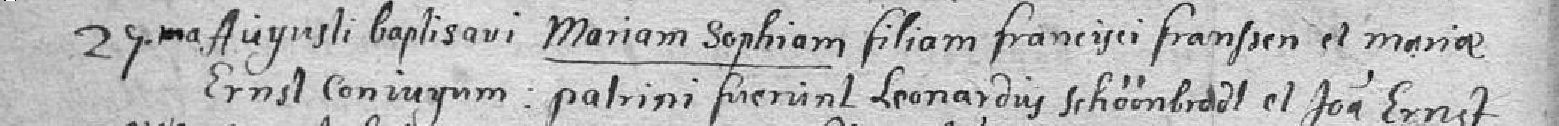 27.ma Augusti baptisavi Mariam Sophiam filiam francisci franssen et mariæ
Ernst coniugum : patrini fuerunt Leonardus schöönbrodt et Joã Ernst